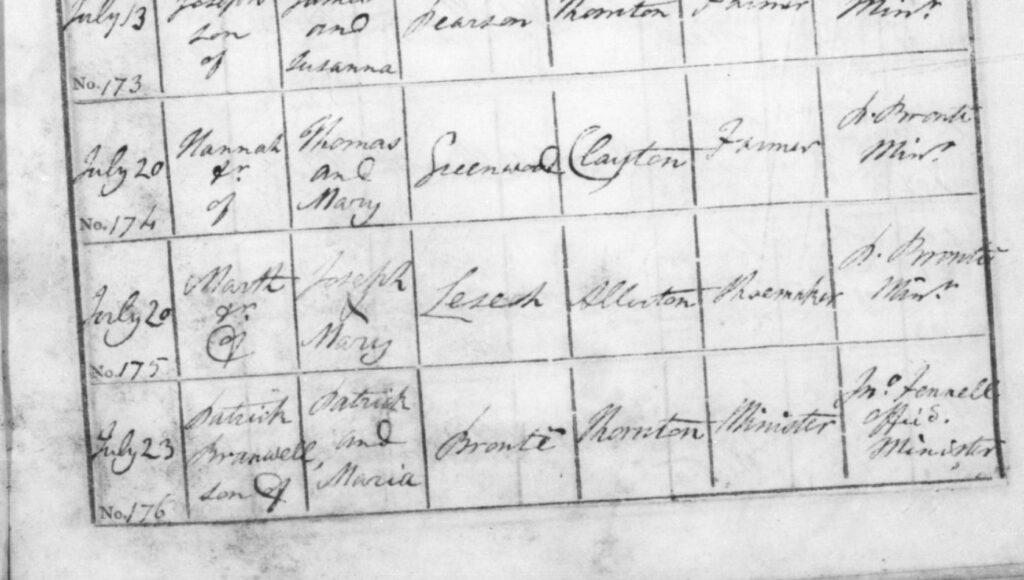 July 13 Joseph son of James and Susanna Pearson Thornton Farmer Minr.
No. 173
July 20 Hannah dr. of Thomas and Mary Greenwood Clayton Farmer P. Brontë Minr.
No. 174
July 20 Marth dr. of Joseph & Mary Leseeh Allerton Shoemaker P. Brontë Minr.
No. 175
July 23 Patrick Branwell son of Patrick and Maria Brontë Thornton Minister Jno. Fennell offid. Minister
No. 176